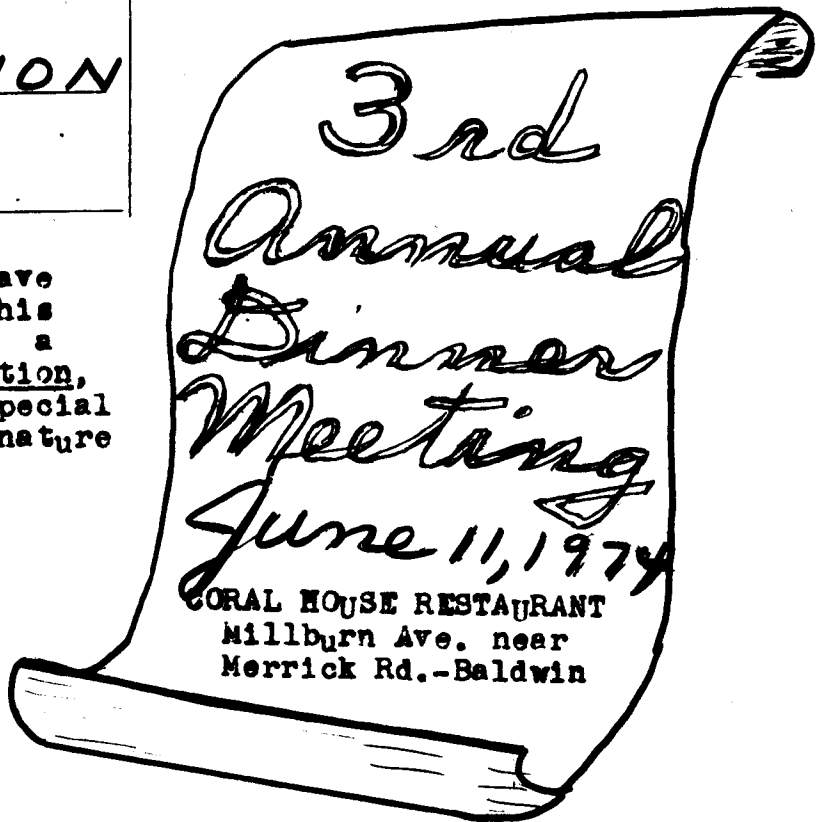 ION
ave
his
a
tion,
pecial
nature
3rd
Annual
Dinner
Meeting
June 11, 1974
CORAL HOUSE RESTAURANT
Millburn Ave. near
Merrick Rd.-Baldwin